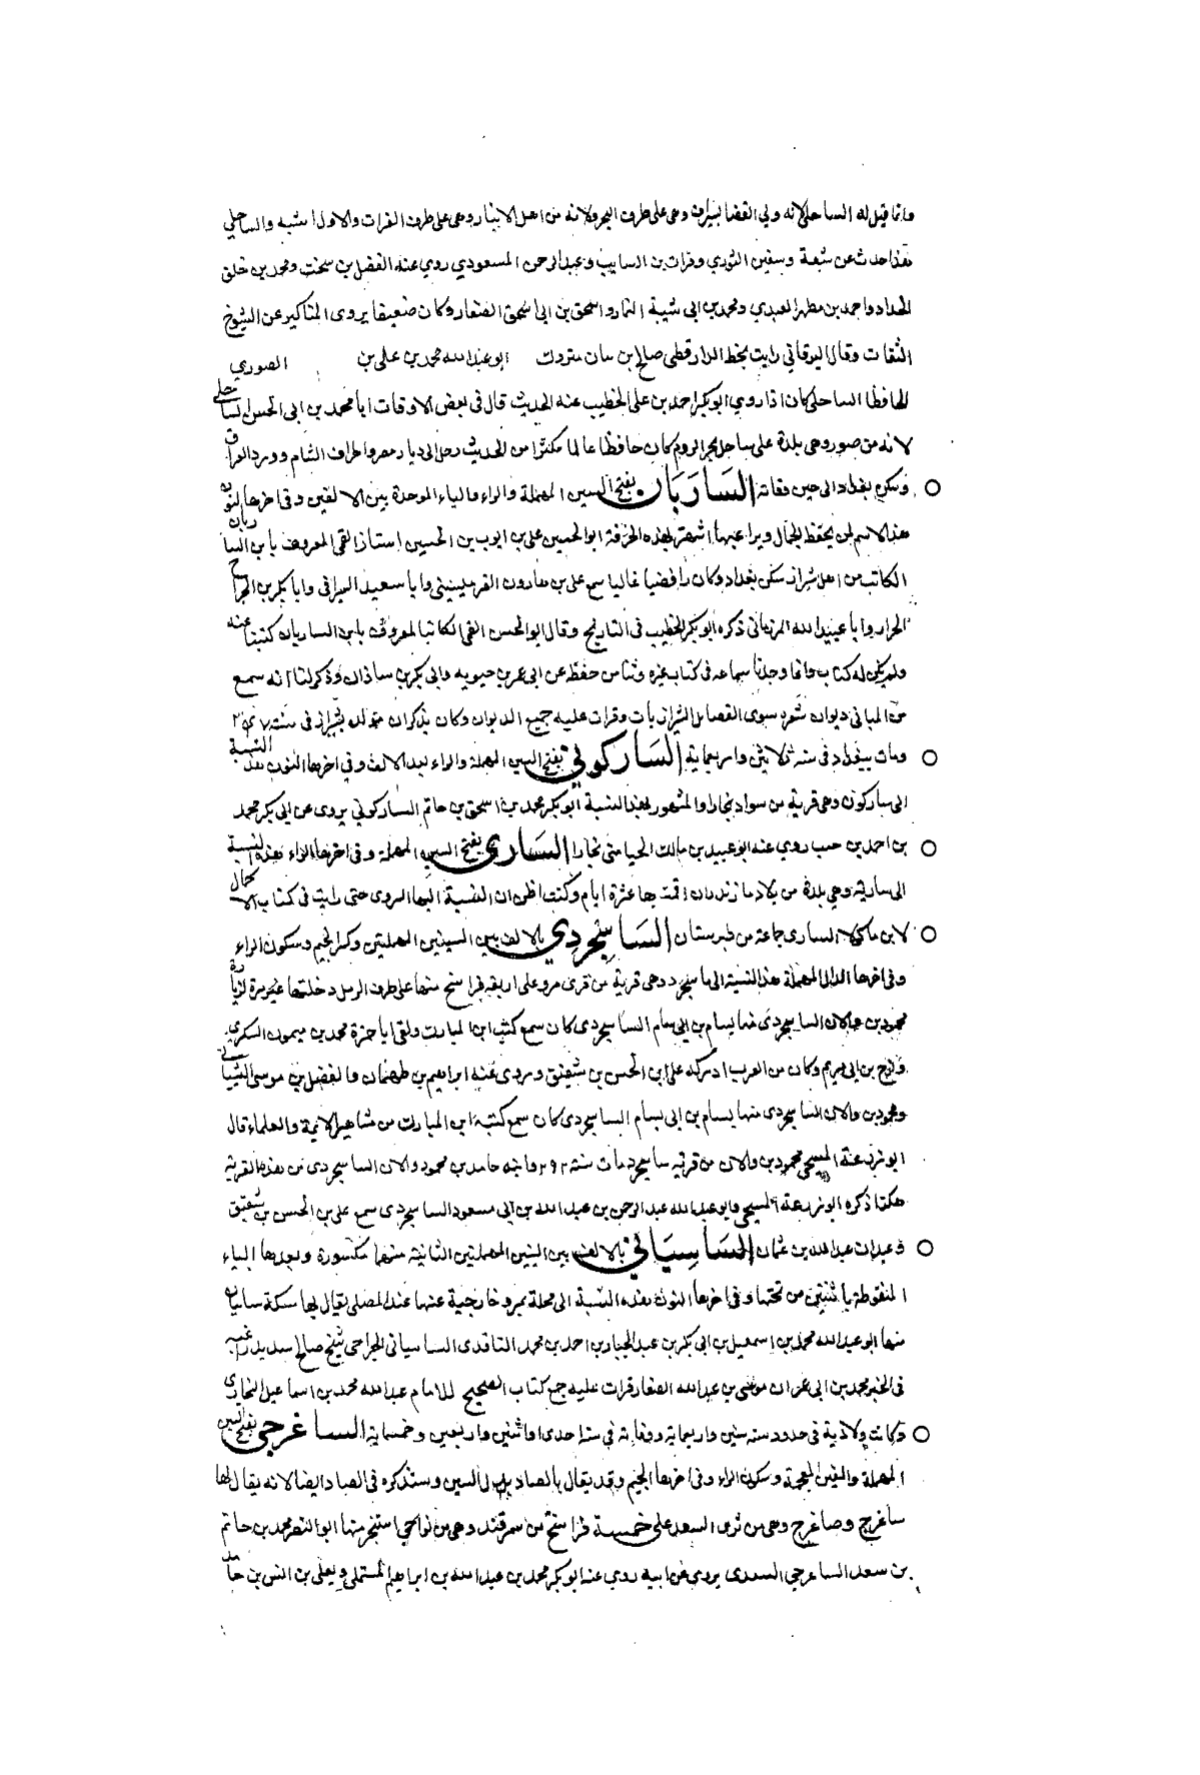 وانما قيل له الساحلي لانه ولي القضا بسيراف وهي على طرف البحر ولانه من اهل الانبار وهي على طرف الفرات والاول اشبه والساحلي
هذا حدث عن شعبة وسفين الثوري وفرات بن السايب وعبد الرحمن المسعودي روي عنه الفضل بن سخت ومحمد بن خلق
الحداد واحمد بن مطهر العبدي ومحمد بن ابي شيبة النمار واسحق بن ابي اسحق الصفار وكان ضعيفا يروى المناكير عن الشيوخ
الثقات وقال البرقاني رايت بخط الدارقطى صالح بن بيان متروك ابو عبد الله محمد بن على بن الصوري
الحافظ الساحلي كان اذا روي ابو بكر احمد بن على الخطيب عنه الحديث قال في بعض الاوقات ابا محمد بن ابى الحسن الساحلي
لانه من صور وهى بلدة على ساحل بحر الروم كان حافظا عالما مكثرا من الحديث رحل الى ديار مصر واطراف الشام وورد العراق
وسكن بغداد الى حين وفاته السَارَبَان بفتح السين المهملة والراء والباء الموحدة بين الالفين وفي اخرها النون
هذا الاسم لمن يحفظ الجمال ويراعيها اشتهر بهذه الحرفة ابو الحسين على بن ايوب بن الحسين استاذ القمى المعروف بابن الساربان
الكاتب من اهل شيراز سكن بغداد وكان رافضيا غاليا سمع على بن هارون القرميسينى وابا سعيد السيرافى وابا بكر بن الجراح
الحرار وابا عبيد الله المرزبانى ذكره ابو بكر الخطيب في التاريخ وقال ابو الحسن القمى الكاتب المعروف بابن الساربان كتبنا عنه
ولم يكن له كتاب وانما وجدنا سماعه في كتاب غيره وثنا من حفظه عن ابي عمر بن حيويه وابى بكر بن شاذان وذكر لنا انه سمع
من المتنبى ديوان شعره سوى القصايد الشيرازيات وقرات عليه جميع الديوان وكان يذكر ان مولده بشيراز فى سنة ٣٤٧
ومات ببغداد في سنة ثلاثين واربعماية السَاركوني بفتح السين المهملة والراء بعد الالف وفي اخرها النون هذه النسبة
الى ساركون وهى قرية من سواد بخارا والمشهور بهذه النسبة ابو بكر محمد بن اسحق بن حاتم الساركوني يروى عن ابي بكر محمد
بن احمد بن حبب روي عنه ابو عبيد بن مالك الحيا متى بخارا السَاري بفتح السين المهملة وفي اخرها الراء هذه النسبة
الى سارية وهي بلدة من بلاد مازندران اقمت بها عشرة ايام وكنت اظن ان النسبة اليها السروى حتى رايت في كتاب الاكمال
لابن ماكولا السارى جماعة من طبرستان السَاسِنجردِي بالالف بين السينين المهملتين وكسر الجيم وسكون الراء
وفي اخرها الدال المهملة هذه النسبة الى ساسنجرد وهى قرية من قرى مرو على اربعة فراسخ منها على طرف الرمل دخلتها غير مرة لزيارة
محمود بن والان الساسجردى منها بسام بن ابي بسام الساسجردى كان سمع كتب ابن المبارك ولقى ابا حمزة محمد بن ميمون السكرى
ونوح بن ابى مريم وكان من العرب ادركه على بن الحسن بن شقيق وروى عنه ابراهيم بن طهمان والفضل بن موسى الشيباني
ومحمود بن والان الساسجردى منها بسام بن ابي بسام الساسجردى كان سمع كتب ابن المبارك من مشاهير الائمة والعلماء قال
ابو زرعة المسيحى محمود بن والان من قرية ساسجرد مات سنة ٢٩٢ وابنه حامد بن محمود والان الساسجردى من هذه القرية
هكذا ذكره ابو زرعة المسيحى وابو عبد الله عبد الرحمن بن عبد الله بن ابي مسعود الساسجردى سمع على بن الحسن بن شقيق
وعبدان عبد الله بن عثمان السَاسِيَاني بالالف بين السينين المهملتين الثانية منهما مكسورة وبعدها الياء
المنقوطة باثنتين من تحتها وفي اخرها النون هذه النسبة الى محلة بمرو خارجية عنها عند المصلى يقال لها سكة ساسيان
منها ابو عبد الله محمد بن اسمعيل بن ابى بكر بن عبد الجبار بن احمد بن محمد الناقدى الساسيانى الجراحى شيخ صالح سديد رغب
في الخير محمد بن ابى عمران موسى بن عبد الله الصفار قرات عليه جمع كتاب الصحيح للامام عبد الله محمد بن اسماعيل البخاري
وكانت ولادته في حدود سنة ستين واربعماية ووفاته في سنة احدى او اثنين واربعين وخمسماية الساغرجي بفتح السين
المهملة والغين المعجمة وسكون الراء وفي اخرها الجيم وقد يقال بالصاد بدل السين وسنذكره في الصاد ايضا لانه يقال لها
ساغرج وصاغرج وهى من قرى السغد على خمسة فراسخ من سمرقند وهى من نواحي اشتيخن منها ابو النصر محمد بن حاتم
بن سعد الساغرجي السعدى يروى عن ابيه روي عنه ابو بكر محمد بن عبد الله بن ابراهيم المستملى ويعلى بن انس بن حامد